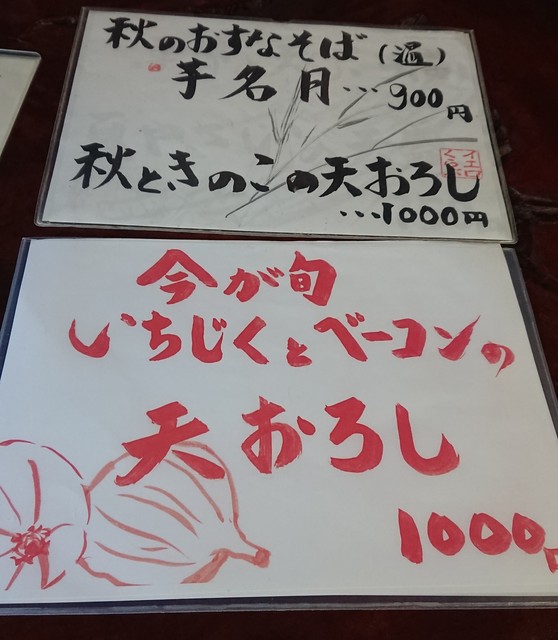 秋のおすなそば(温)
芋名月…900円
秋ときのこの天おろし
…1000円
今が旬
いちじくとベーコンの
天おろし
1000円